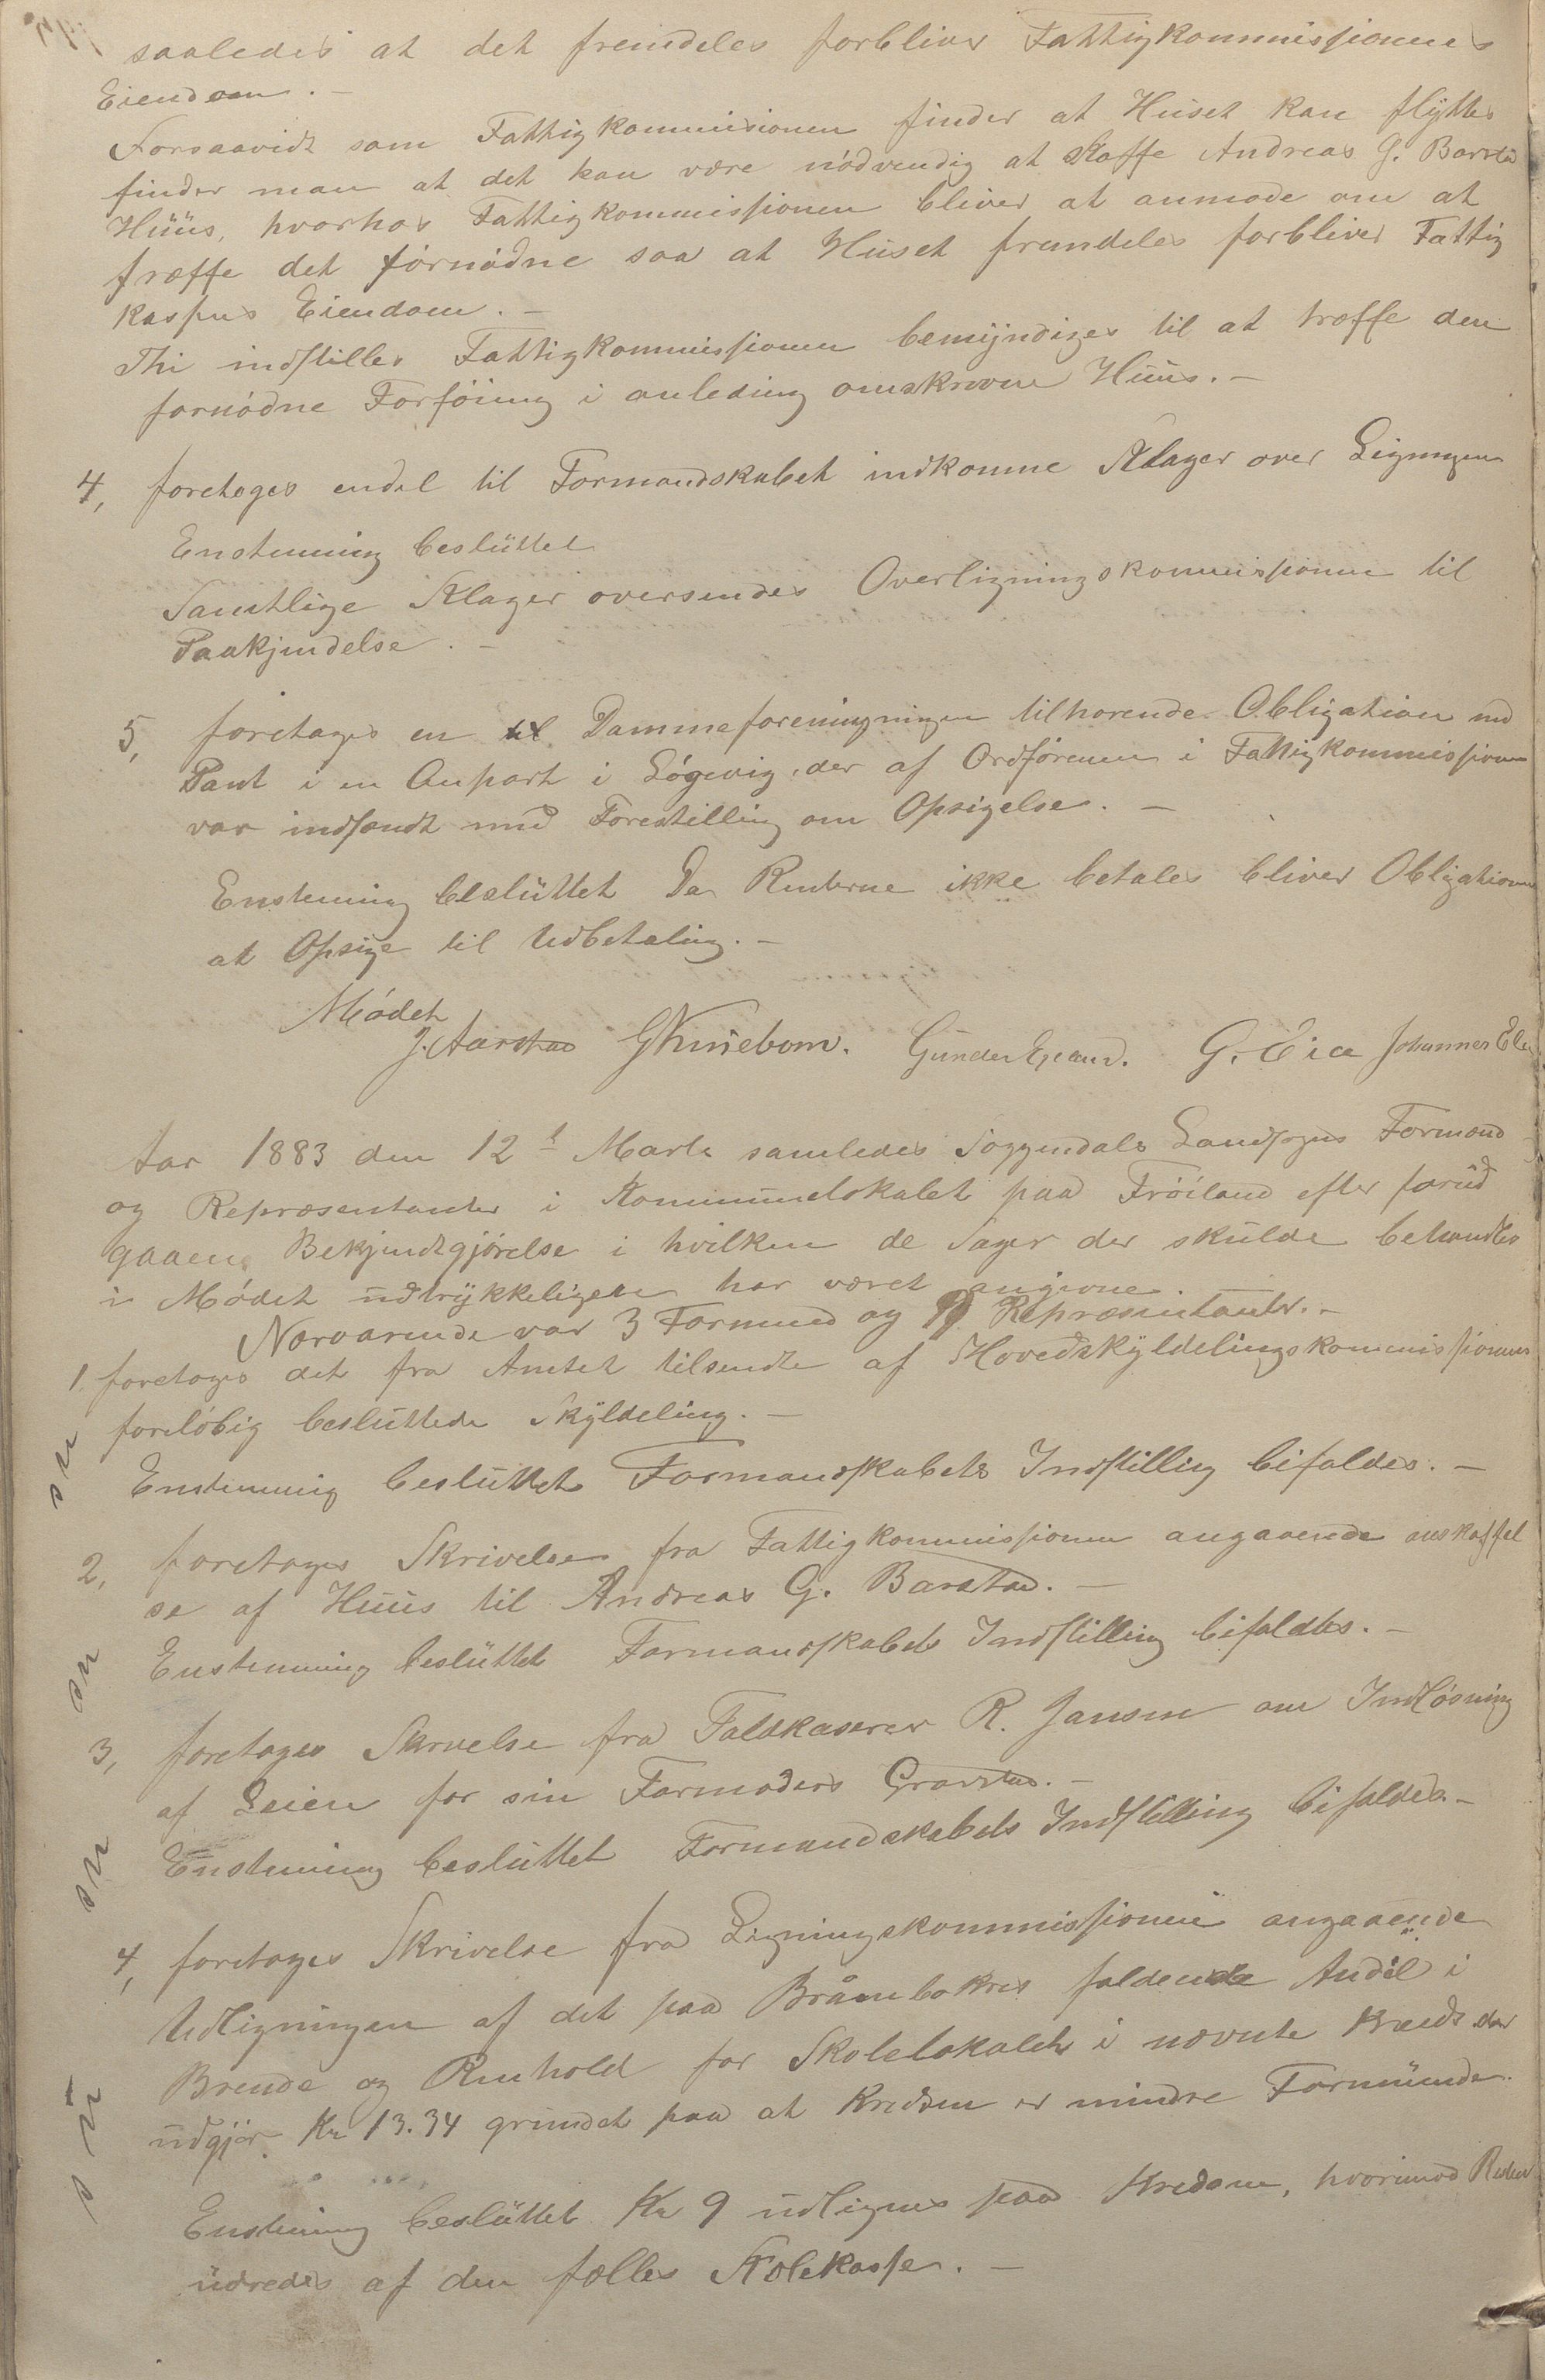 saaledes at det fremdeles forbliver Fattigkommissionens
Eiendom. –
Forsaavidt som Fattigkommisionen finder at Huset kan flyttes
finder man at det kan være nødvendig at skaffe Andreas G. Barstad
Huus, hvorhos Fattigkommissionen bliver at anmode om at
træffe det fornødne saa at Huset fremdeles forbliver Fattig
kassens Eiendom. –
Thi indstilles Fattigkommissionen bemyndiges til at træffe den
fornødne Forføining i anleding omskrevne Huus. –
4, foretoges endel til Formandskabet indkomne Klager over Ligningen
Enstemmig besluttet
Samtlige Klager oversendes Overligningskommissionen til
Paakjendelse. –
5, foretoges en til Dammeforeningningen tilhørende Obligation med
Pant i en Anpart i Løgevig, der af Ordføreren i Fattigkommissionen
var indsendt med Forestilling om Opsigelse. –
Enstemmig besluttet Da Renterne ikke betales bliver Obligationen
at Opsige til Udbetaling. –
Mødet
J. Aarstad Gunder Egeland. G. Eia Johannes
Aar 1883 den 12t Marts samledes Soggendals Landsogns Formænd
og Repræsentanter i Kommunelokalet paa Frøiland efter forud
gaaen Bekjendtgjørelse i hvilken de Sager der skulde behandles
i Mødet udtrykkeligen har været angivne. –
Nærværende var 3 Formænd og 9 Repræsentanter. –
1. foretoges det fra Amtet tilsendte af Hovedskyldelingskommissionen
foreløbig besluttede Skyldeling. –
Enstemmig besluttet Formandskabets Indstilling bifaldes. –
2, foretoges Skrivelse fra Fattigkommissionen angaaende anskaffel
se af Huus til Andreas G. Barstad. –
Enstemmig besluttet Formandskabets Indstilling bifaldtes. –
3, foretoges Skrivelse fra Toldkaserer R. Jansen om Indløsning
af Leien for sin Farmoders Gravsted. –
Enstemmig besluttet Formandskabets Indstilling bifaldes. –
4, foretoges Skrivelse fra Ligningskommissionen angaaende
Udligningen af det paa Bråmbokres faldende Andel i
Brende og Renhold for Skolelokalet i nævnte Kreds der
udgjør Kr 13.34 grundet paa at Kredsen er mindre Formuende.
Enstemmig besluttet Kr 9 udlignes paa Kredsen, hvorimod Resten
udredes af den fælles Skolekasse. –